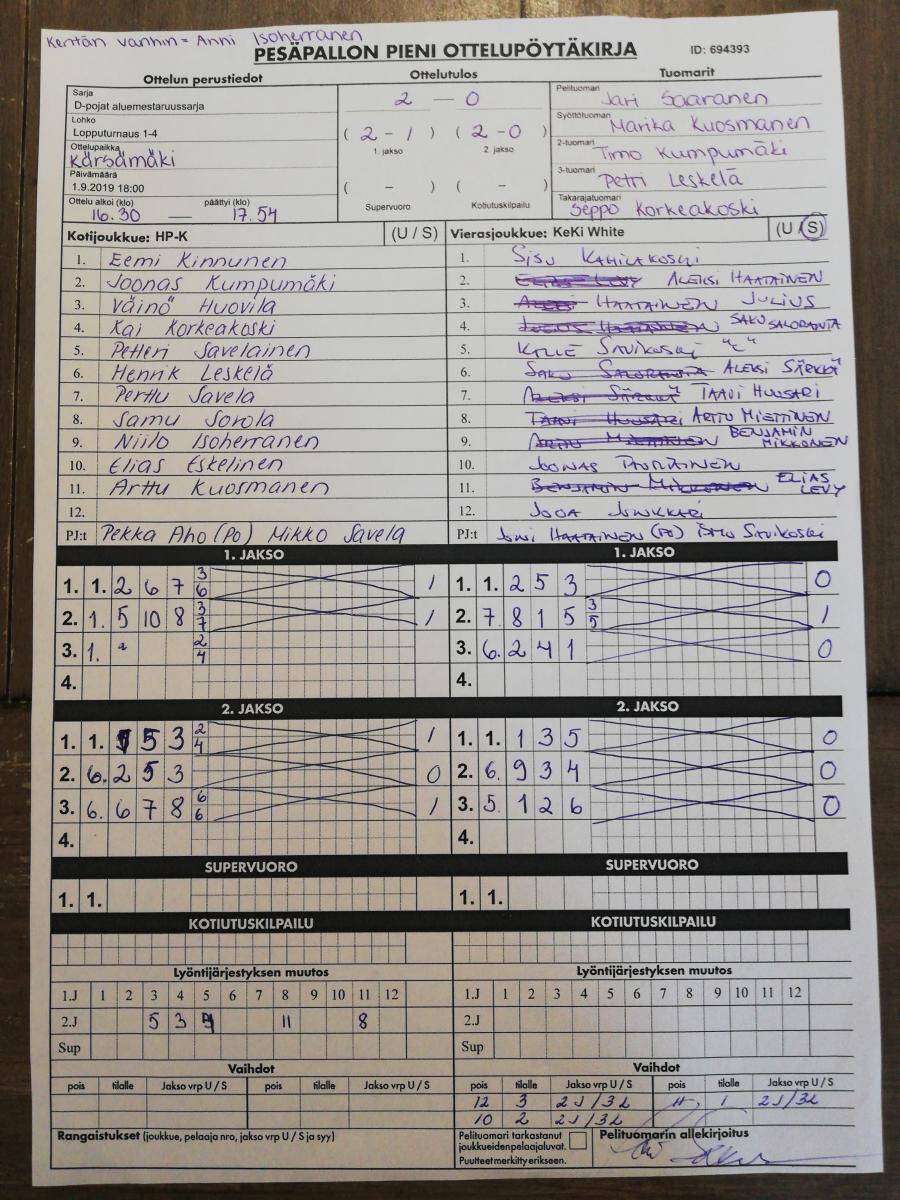 Kentän vanhin = Anni Isoherranen
PESÄPALLON PIENI OTTELUPÖYTÄKIRJA
ID: 694393
Ottelun perustiedot
Sarja
D-pojat aluemestaruussarja
Lohko
Lopputurnaus 1-4
Ottelupaikka
Kärsämäki
Päivämäärä
1.9.2019 18:00
Ottelu alkoi (klo) päättyi (klo)
16.30 — 17.54
Ottelutulos
2 — 0
( 2 - 1 ) ( 2 - 0 )
1. jakso 2. jakso
( - ) ( - )
Supervuoro Kotiutuskilpailu
Tuomarit
Pelituomari Jari Saaranen
Syöttötuomari Marika Kuosmanen
2-tuomari Timo Kumpumäki
3-tuomari Petri Leskelä
Takarajatuomari Seppo Korkeakoski
Kotijoukkue: HP-K (U / S)
1. Eemi Kinnunen
2. Joonas Kumpumäki
3. Väinö Huovila
4. Kai Korkeakoski
5. Petteri Savelainen
6. Henrik Leskelä
7. Perttu Savela
8. Samu Sorola
9. Niilo Isoherranen
10. Elias Eskelinen
11. Arttu Kuosmanen
12.
PJ:t Pekka Aho (Po) Mikko Savela
Vierasjoukkue: KeKi White (U / S)
1. SISU KAHILAKOSKI
2. ELIAS LEVY ALEKSI HAATAINEN
3. ALEKSI HAATAINEN JULIUS
4. JULIUS HAATAINEN SAKU SALORANTA
5. KALLE SAVIKOSKI "C"
6. SAKU SALORANTA ALEKSI SÄRKKÄ
7. ALEKSI SÄRKKÄ TAAVI HUUSARI
8. TAAVI HUUSARI ARTTU MIETTINEN
9. ARTTU MIETTINEN BENJAMIN MIKKONEN
10. JOONAS
11. BENJAMIN MIKKONEN ELIAS LEVY
12. JOOA
PJ:t JONI HAATAINEN (PO) SAVIKOSKI
1. JAKSO
1. 1. 2 6 7 3 6 1
2. 1. 5 10 8 3 7 1
3. 1. 2 4
4.
1. JAKSO
1. 1. 2 5 3 0
2. 7. 8 1 5 3 5 1
3. 6. 2 4 1 0
4.
2. JAKSO
1. 1. 5 3 2 4 1
2. 6. 2 5 3 0
3. 6. 6 7 8 6 6 1
4.
2. JAKSO
1. 1. 1 3 5 0
2. 6. 9 3 4 0
3. 5. 1 2 6 0
4.
SUPERVUORO
1. 1.
SUPERVUORO
1. 1.
KOTIUTUSKILPAILU
KOTIUTUSKILPAILU
Lyöntijärjestyksen muutos
1.J 1 2 3 4 5 6 7 8 9 10 11 12
2.J 5 3 4 11 8
Sup
Lyöntijärjestyksen muutos
1.J 1 2 3 4 5 6 7 8 9 10 11 12
2.J
Sup
Vaihdot
pois tilalle Jakso vrp U / S pois tilalle Jakso vrp U / S
Vaihdot
pois tilalle Jakso vrp U / S pois tilalle Jakso vrp U / S
12 3 2J/3L 11 1 2J/3L
10 2 2J/3L
Rangaistukset (joukkue, pelaaja nro, jakso vrp U / S ja syy)
Pelituomari tarkastanut
joukkueiden pelaajaluvat.
Puutteet merkitty erikseen.
Pelituomarin allekirjoitus